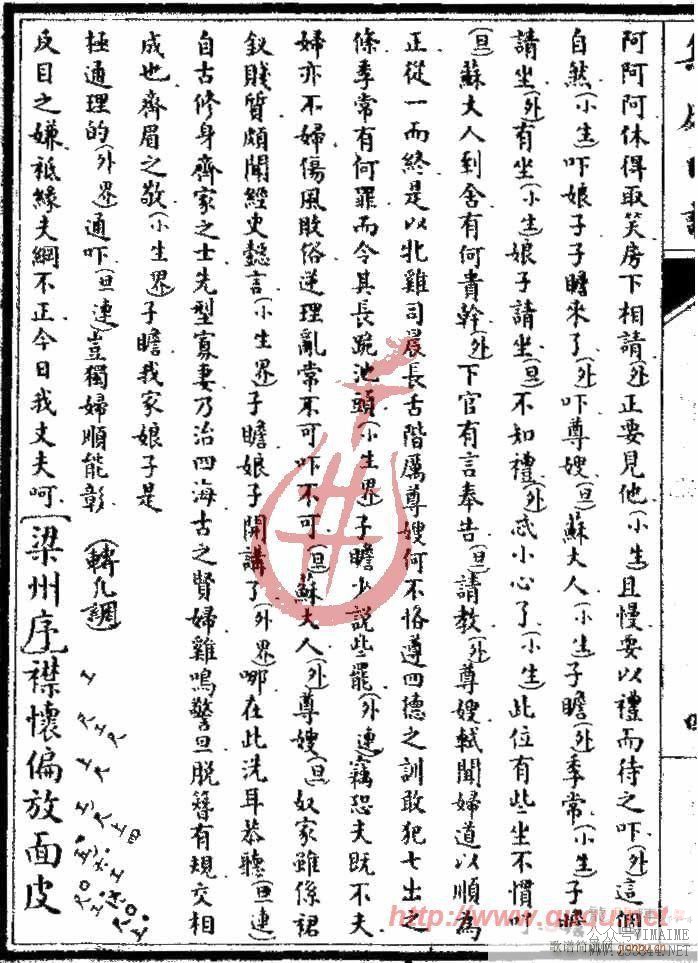 阿阿阿休得取笑房下相請(外)正要見他(小生)且慢要以禮而待之吓(外)這個
自然(小生)吓娘子子瞻來了(外)吓尊嫂(旦)蘇大人(小生)子瞻(外)季常(小生)子瞻
請坐(外)有坐(小生)娘子請坐(旦)不知禮(外)忒小心了(小生)此位有些坐不慣吓
(旦)蘇大人到舍有何貴幹(外)下官有言奉告(旦)請教(外)尊嫂軾聞婦道以順為
正從一而終是以牝雞司晨長舌階厲尊嫂何不恪遵四德之訓敢犯七出之
條季常有何罪而令其長跪池頭(小生界)子瞻少說些罷(外連)竊恐夫既不夫
婦亦不婦傷風敗俗逆理亂常不可吓不可(旦)蘇大人(外)尊嫂(旦)奴家雖係裙
釵賤質頗聞經史懿言(小生界)子瞻娘子開講了(外界)哪在此洗耳恭聽(旦連)
自古修身齊家之士先型寡妻乃治四海古之賢婦雞鳴警旦脫簪有規交相
成也齊眉之敬(小生界)子瞻我家娘子是
極通理的(外界)通吓(旦連)豈獨婦順能彰(轉凡調)
反目之嫌祗緣夫綱不正今日我丈夫呵[梁州序]襟懷偏放面皮
http://www.gepu.net
公众号YIMAIME